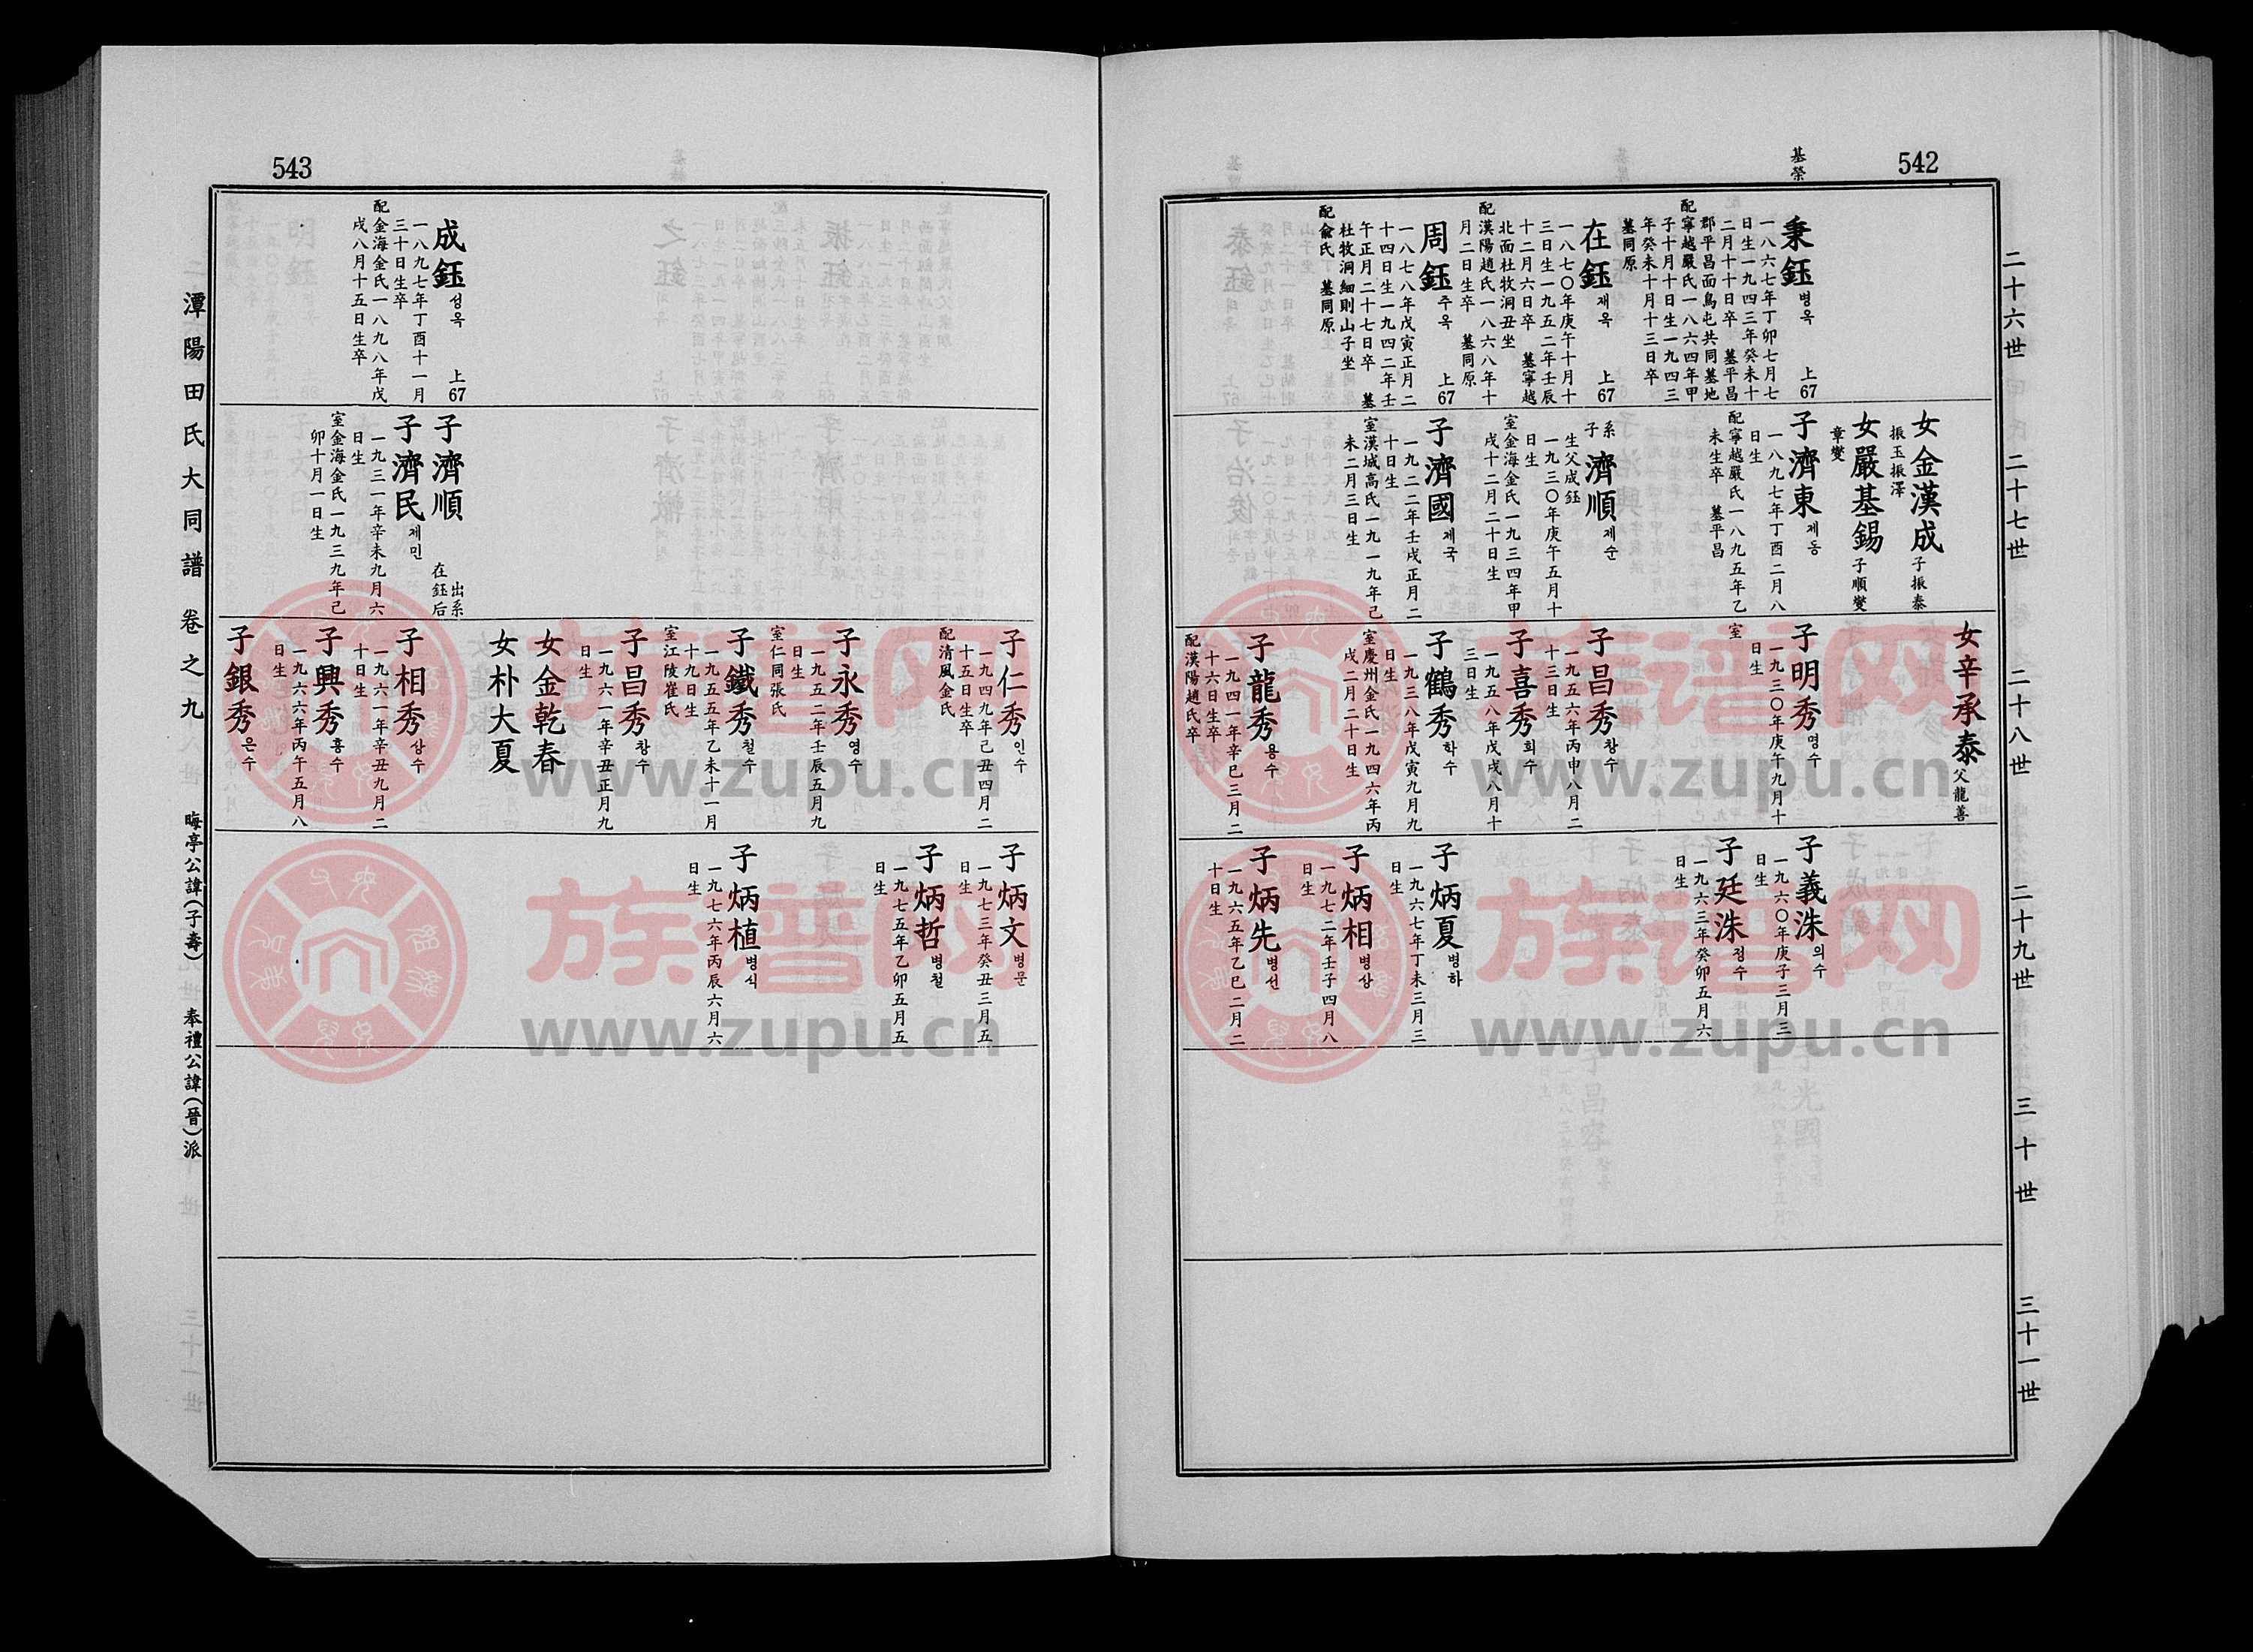 542
基榮
二十六世
二十七世
二十八世
二十九世
三十世
三十一世
秉鈺 병옥 上67
一八六七年丁卯七月七
日生一九四三年癸未十
二月十十日卒 墓平昌
郡平昌面鳥屯共同墓地
配寧越嚴氏一八六四年甲
子十月十日生一九四三
年癸未十月十三日卒
墓同原
在鈺 재옥 上67
一八七〇年庚午十月十
三日生一九五二年壬辰
十二月六日卒 墓寧越
北面杜牧洞丑坐
配漢陽趙氏一八六八年十
月二日生卒 墓同原
周鈺 주옥 上67
一八七八年戊寅正月二
十四日生一九四二年壬
午正月二十七日卒 墓
杜牧洞細則山子坐
配兪氏 墓同原
女金漢成 子振泰
振玉振澤
女嚴基錫 子順燮
章燮
子濟東 제동
一八九七年丁酉二月八
日生
配寧越嚴氏一八九五年乙
未生卒 墓平昌
系子濟順 제순
生父成鈺
一九三〇年庚午五月十
日生
室金海金氏一九三四年甲
戌十二月二十日生
子濟國 제국
一九二二年壬戌正月二
十日生
室漢城高氏一九一九年己
未二月三日生
女辛承泰 父龍善
子明秀 명수
一九三〇年庚午九月十
日生
室
子昌秀 창수
一九五六年丙申八月二
十三日生
子喜秀 희수
一九五八年戊戌八月十
三日生
子鶴秀 학수
一九三八年戊寅九月九
日生
室慶州金氏一九四六年丙
戌二月二十日生
子龍秀 용수
一九四一年辛巳三月二
十六日生卒
配漢陽趙氏卒
子義洙 의수
一九六〇年庚子三月三
日生
子廷洙 정수
一九六三年癸卯五月六
日生
子炳夏 병하
一九六七年丁未三月三
日生
子炳相 병상
一九七二年壬子四月八
日生
子炳先 병선
一九六五年乙巳二月二
十日生
族谱网
www.zupu.cn
族谱网
www.zupu.cn
543
成鈺 성옥 上67
一八九七年丁酉十一月
三十日生卒
配金海金氏一八九八年戊
戌八月十五日生卒
子濟順 出系在鈺后
子濟民 제민
一九三一年辛未九月六
日生
室金海金氏一九三九年己
卯十月一日生
子仁秀 인수
一九四九年己丑四月二
十五日生卒
配清風金氏
子永秀 영수
一九五二年壬辰五月九
日生
室仁同張氏
子鐵秀 철수
一九五五年乙未十一月
十九日生
室江陵崔氏
子昌秀 창수
一九六一年辛丑正月九
日生
女金乾春
女朴大夏
子相秀 상수
一九六一年辛丑九月二
十日生
子興秀 흥수
一九六六年丙午五月八
日生
子銀秀 은수
子炳文 병문
一九七三年癸丑三月五
日生
子炳哲 병철
一九七五年乙卯五月五
日生
子炳植 병식
一九七六年丙辰六月六
日生
族谱网
www.zupu.cn
族谱网
www.zupu.cn
潭陽田氏大同譜 卷之九 晦亭公諱(子壽) 奉禮公諱(晉)派